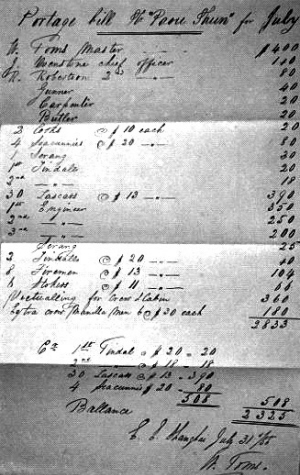 Portage bill for July
W. Toms Master $ 400
chief officer 100
R. Robertson 2nd 80
Gunner 40
Carpenter 20
Butler 20
2 Cooks @ $ 10 each 20
4 Seacunnies @ $ 20 80
1 Serang 30
1st Tindal 20
2nd 18
30 Lascars @ $ 13 390
1st Engineer 350
2nd 250
3rd 200
Serang 25
2 Tindals @ $ 20 40
8 Firemen @ $ 13 104
6 Stokers @ $ 11 66
Victualling for Crew & Cabin 360
Extra crew Manilla Men 6 @ 30 each 180
2833
Cr 1st Tindal @ $ 20 - 20
2nd @ $ 18 - 18
30 Lascars @ $ 13 - 390
4 Seacunnies $ 20 - 80
508 508
Ballance 2325
E. E. Shanghai July 31
W. Toms.